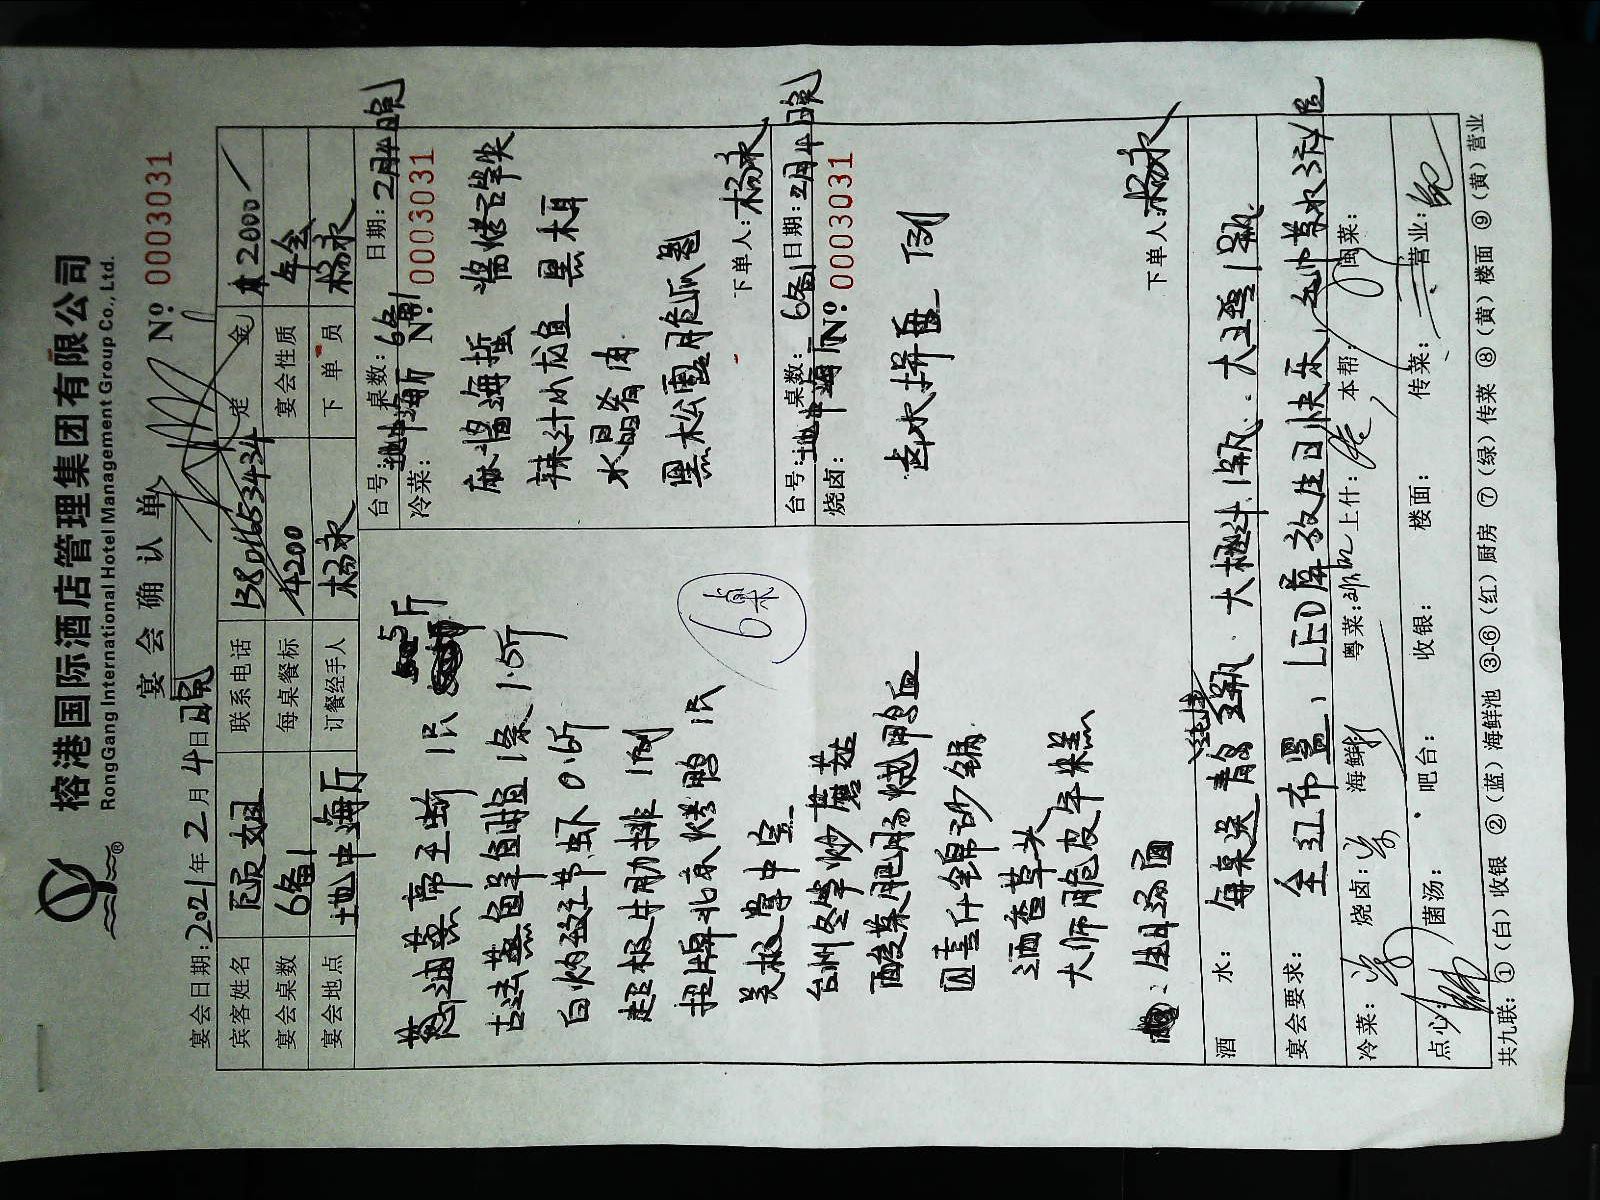 榕港国际酒店管理集团有限公司
RongGang International Hotel Management Group Co., Ltd.
宴会确认单 № 0003031
宴会日期：2021年2月4日晚
宾客姓名 联系电话 13801653434 定金 2000
宴会桌数 6备1 每桌餐标 4200 宴会性质 年会
宴会地点 地中海厅 订餐经手人 杨永 下单员 杨永
葱油蒸帝王蟹 1只 5斤
古法蒸鱼 1条 1.5斤
白灼 节虾 0.6斤
超极牛肋排 1例
招牌北京烤鸭 1只
台州冬笋炒蘑菇
酸菜肥肠烧鸭血
什锦砂锅
酒香草头
大师脆皮年糕
生日汤面
6桌
台号：地中海厅 桌数：6备1 日期：2月4日晚
冷菜： № 0003031
麻酱海蜇 酱烤笋尖
辣汁小龙鱼 黑木耳
水晶肴肉
黑松露脆瓜卷
下单人：杨永
台号：地中海厅 桌数：6备1 日期：2月4日晚
烧卤： № 0003031
卤水拼盘 1例
下单人：杨永
酒水： 每桌送 大橙汁1瓶、大 1瓶
宴会要求： 全红布置、LED屏放生日快乐
冷菜： 烧卤： 海鲜： 粤菜： 上什： 本帮： 闽菜：
点心： 菌汤： 吧台： 收银： 楼面： 传菜： 营业：
共九联：①（白）收银 ②（蓝）海鲜池 ③-⑥（红）厨房 ⑦（绿）传菜 ⑧（黄）楼面 ⑨（黄）营业